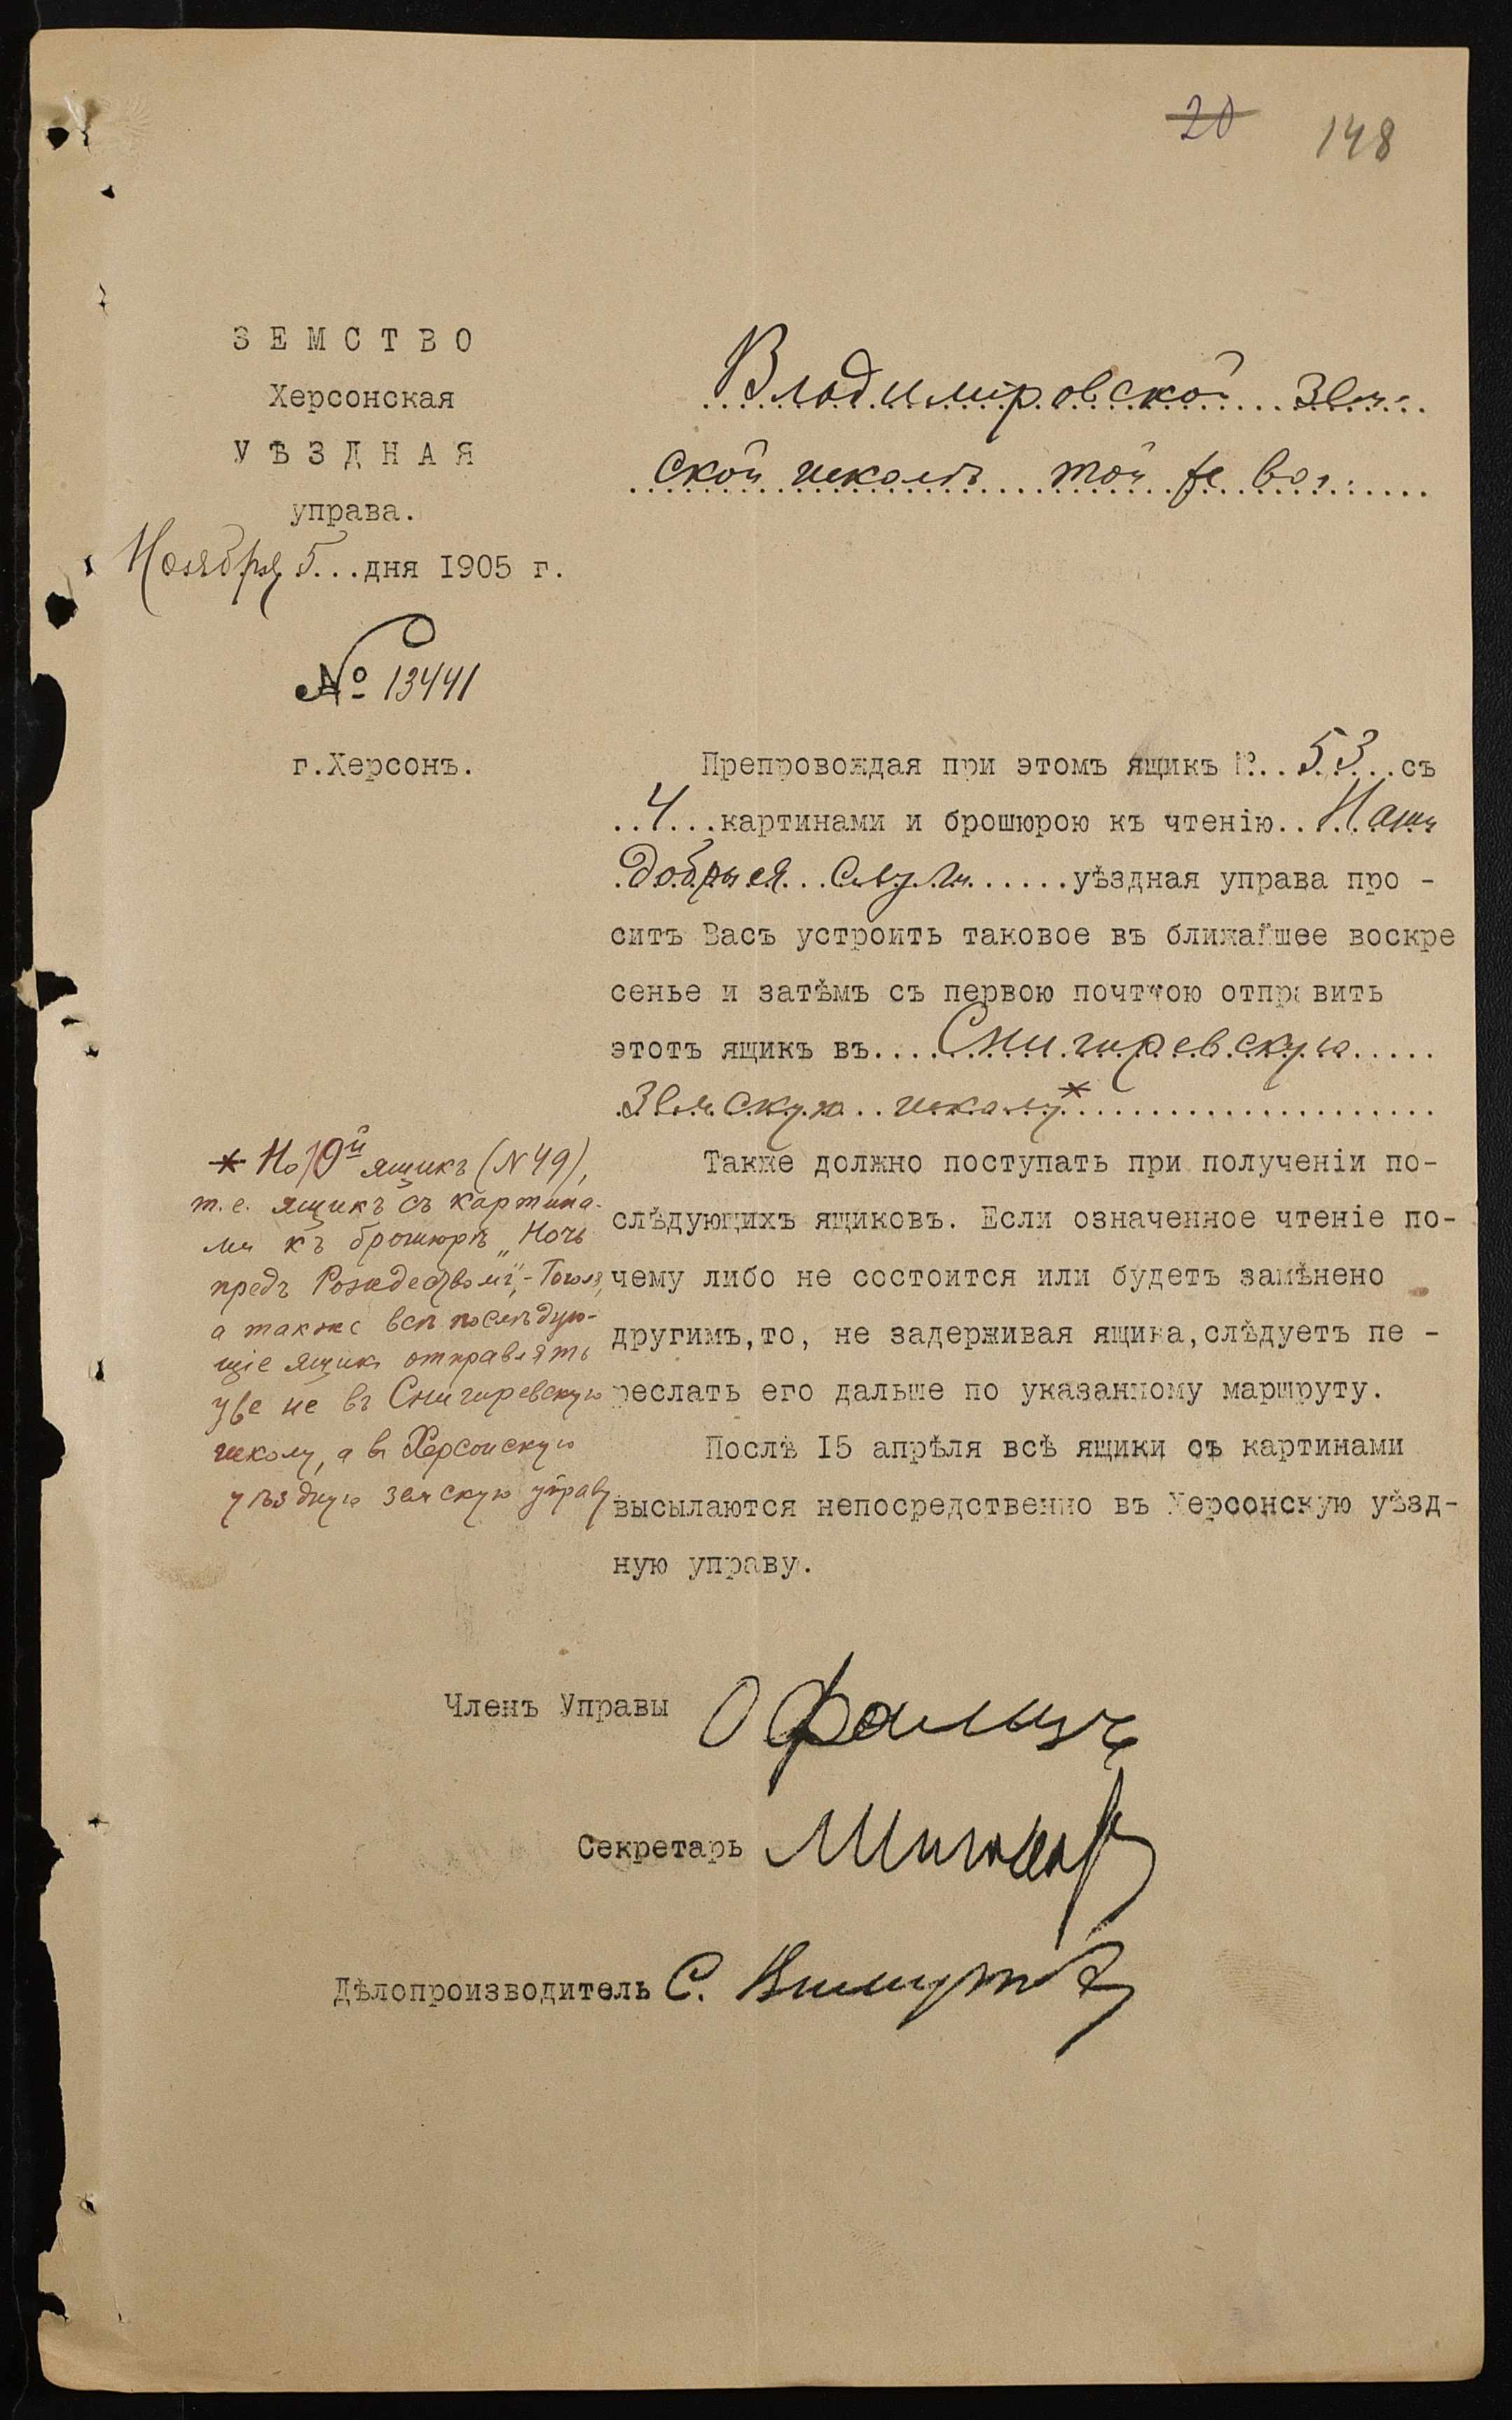 20 148
ЗЕМСТВО
Херсонская
УѢЗДНАЯ
управа.
Ноября 5...дня 1905 г.
№ 13441
г.Херсонъ.
Владимировской Зем-
ской школѣ той же вол.
Препровождая при этомъ ящикъ №...53...съ
..4...картинами и брошюрою къ чтенію..Наши
добрыея...слуги......уѣздная управа про -
ситъ Васъ устроить таковое въ ближайшее воскре
сенье и затѣмъ съ первою почттою отправить
этотъ ящикъ въ....Снигиревскую.....
Земскую..школу*......................
Также должно поступать при полученіи по-
слѣдующихъ ящиковъ. Если означенное чтеніе по-
чему либо не состоится или будетъ замѣнено
другимъ,то, не задерживая ящика,слѣдуетъ пе -
реслать его дальше по указанному маршруту.
Послѣ 15 апрѣля всѣ ящики съ картинами
высылаются непосредственно въ Херсонскую уѣзд-
ную управу.
* Но 10й ящикъ (N 49),
т.е. ящикъ съ картина-
ми къ брошюрѣ „Ночь
предъ Рождествомъ",- Гоголя,
а также всѣ послѣдую-
щіе ящики отправлять
уже не въ Снигиревскую
школу, а въ Херсонскую
уѣздную земскую управу.
Членъ Управы
Секретарь
Дѣлопроизводитель С.